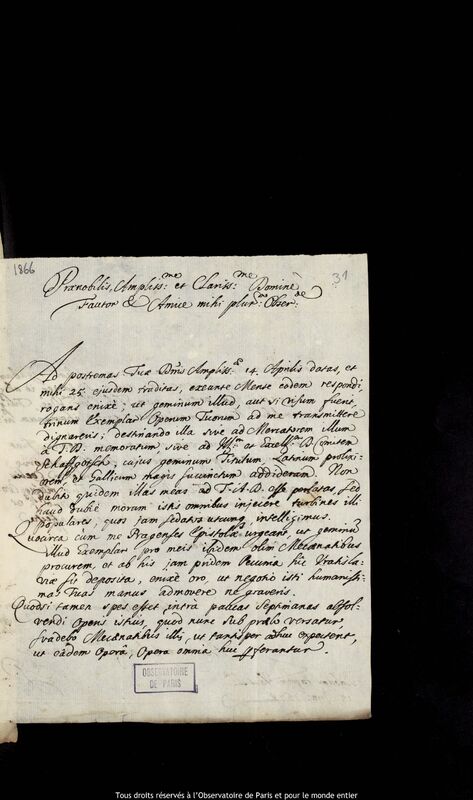 1866
31
Prænobilis, Ampliss:me et Clariss:me Domine
Fautor & Amice mihi plur:m Obser:de
Ad postremas Tuæ Dnis Ampliss:æ 14. Aprilis datas, et
mihi 25 ejusdem traditas, exeunte Mense eodem respondi,
rogans enixè; ut geminum illud, aut si visum fuerit,
trinum exemplar Operum Tuorum ad me transmittere
dignareris; destinando illa sive ad Mercatorem illum
à T.D. memoratum, sive ad Ill: et Excell: D. Comitem
Schaffgotsch, cujus geminum Titulum, Latinum prolixi-
orem, et Gallicum magis succinctum addideram. Non
dubito quidem illas meas ad T.A.D. esse perlatas, sed
haud dubiè moram istis omnibus injecere turbines illi
populares, quos jam sedatos utcunq intelligimus.
Quocirca cùm me Pragenses Epistolæ urgeant, ut geminum
illud Exemplar pro meis ibidem olim Mecænatibus
procurem, et ab his jam pridem Pecunia hîc Uratisla-
viæ sit deposita, enixè oro, ut negotio isti humanissi-
mas Tuas manus admovere ne graveris.
Quodsi tamen spes esset, intra paucas septimanas absol-
vendi Operis istius, quod nunc sub prælo versatur,
svadebo Mecænatibus illis, ut tantisper adhuc expectent,
ut eâdem Operâ, Opera omnia huc perferantur.
OBSERVATOIRE
DE PARIS
Tous droits réservés à l'Observatoire de Paris et pour le monde entier